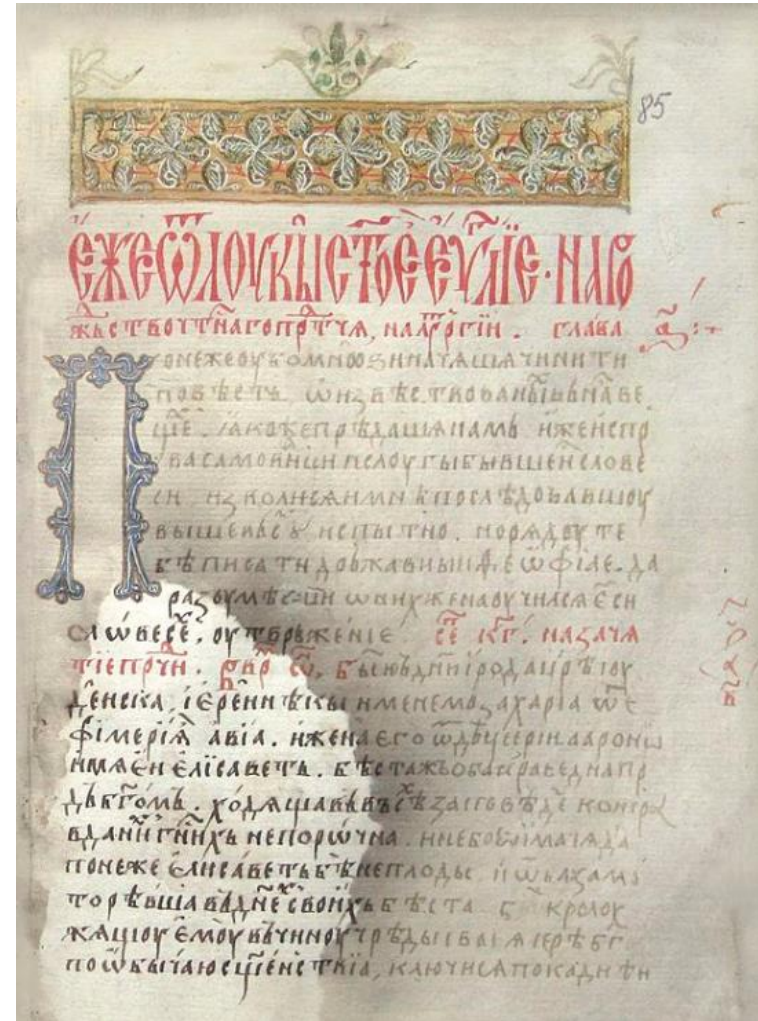 85
є҆́же ѿ лоукы̀ ст҃о́е є҆ѵⷢ҇лїе · на ро
жьство чⷭ҇тнаго прⷣтчѧ, на лїтрⷢ҇їи . глава̀ а҃ :
Понеже оубо мнѡѕи начѧшѧ чинити
повѣсть ѡ҆ извѣствованыⷯ в насъ ве
щеⷯ . ꙗкоже прѣдашѧ намь иже испр
ъва самовидци и слоугы бывшеи слове
си изволисѧ и мнѣ послѣдовавшоу
вышевьсѣⷯ испытно . порѧдоу те
бѣ писати дръжавныи ѳеѡ҆філе . да
разоумѣеши ѡ҆ ниⷯже наоучилсѧ єси
словесеⷯ . оутвръженіе
тіе прⷣтчи . быⷭ҇ въ дни ірода црѣ іоу
дейска, іерей нѣкы именемь захаріа ѿ е
фімеріѧ авіа . и жена єго ѿ дъщерїи аароновъ
имѧ єи єлісаветь . бѣста жь оба праведна прѣ
дь бг҃омь . ходѧща въ всѣⷯ заповѣдеⷯ и оправ
даниⷯ гн҃иⷯ непорочна . и не бѣ има чѧда
понеже єлисаветь бѣ неплоды . и ѡ҆ба зама
торѣвша въ днеⷯ своиⷯ бѣста
жѧщоу ємоу въ чиноу чрѣды своеѧ прѣⷣ бг҃
по ѡ҆бычаю сщ҃енств҃іа, ключисѧ покадити